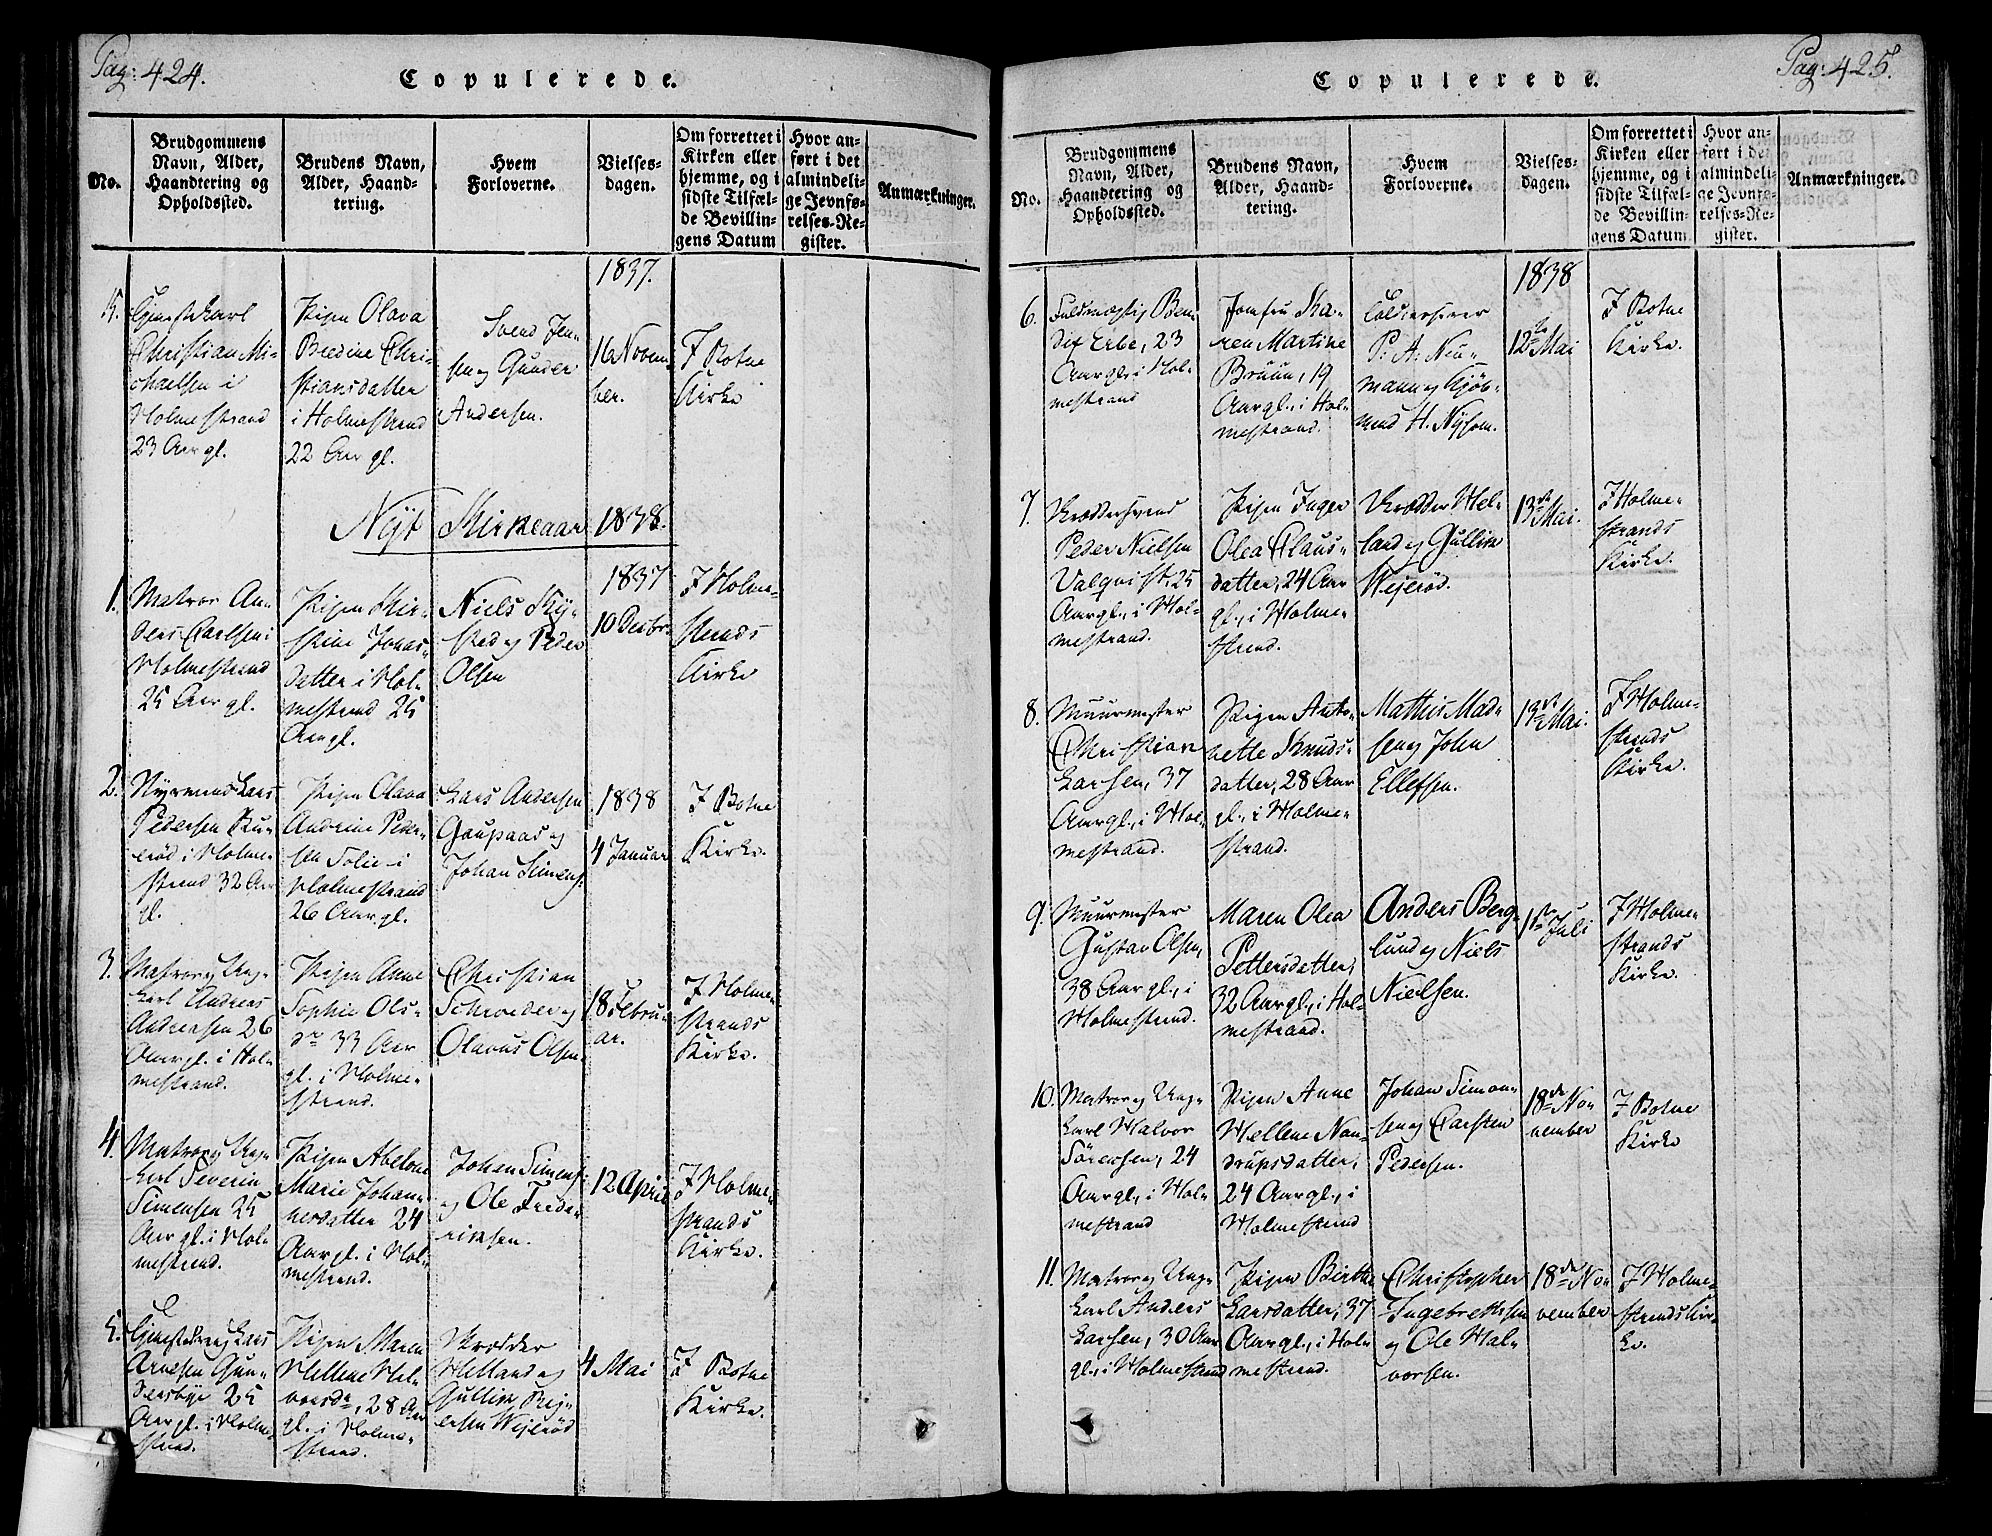 Pag: 424.
Copulerede.
No.
Brudgommens
Navn, Alder,
Haandtering og
Opholdssted.
Brudens Navn,
Alder, Haand-
tering.
Hvem
Forloverne.
Vielses-
dagen.
Om forrettet i
Kirken eller
hjemme, og i
sidste Tilfæl-
de Bevillin-
gens Datum
Hvor an-
ført i det
almindeli-
ge Jevnfø-
relses-Re-
gister.
Anmærkninger.
1837.
15.
Christian Mi-
chaelsen i
Holmestrand
23 Aar gl.
Pigen Olava
Bredine Chri-
stiansdatter
i Holmestrand
22 Aar gl.
Svend Jen-
sen og Gunder
Andersen.
16 Novem-
ber.
I Botne
Kirke
Nyt Kirkeaar 1838.
1.
Matros An-
ders Carlsen i
Holmestrand
25 Aar gl.
Pigen Kir-
stine Jonas-
datter i Hol-
mestrand 25
Aargl.
Niels Ry-
sted og Peder
Olsen
1837
10 Decbr.
I Holme-
strands
Kirke
2.
Lars
Pedersen
i Holme-
strand 32 Aar
gl.
Pigen Olava
Andrine Peder-
sen Solie i
Holmestrand
26 Aar gl.
Lars Andersen
Gaupaas og
Johan Simens:
1838
4 Januar
I Botne
Kirke.
3.
Matros og Ung-
karl Andreas
Andersen 26
Aar gl. i Hol-
mestrand.
Pigen Anne
Sophie Ols-
dr 33 Aar
gl. i Holme-
strand.
Christian
Schrøder og
Olavus Olsen
18 Febru-
ar.
I Holme-
strands
Kirke.
4.
Matros og Ung-
karl Severin
Simensen 25
Aar gl. i Hol-
mestrand.
Pigen Abelone
Marie Johan-
nesdatter 24
Aar gl. i Hol-
mestrand.
Johan Simens:
og Ole Frede-
riksen.
12 April
I Holme-
strands
Kirke.
5.
Lars
Arnesen Gun-
dersbye 25
Aar gl. i Holme-
strand.
Pigen Maren
Hellene Hal-
vorsdr, 28 Aar
gl. i Holme-
strand.
Skrædder
Helland og
Gullik Rej-
ersen Wejerød
4 Mai
I Botne
Kirke.
Pag: 425.
Copulerede.
No.
Brudgommens
Navn, Alder,
Haandtering og
Opholdssted.
Brudens Navn,
Alder, Haand-
tering.
Hvem
Forloverne.
Vielses-
dagen.
Om forrettet i
Kirken eller
hjemme, og i
sidste Tilfæl-
de Bevillin-
gens Datum
Hvor an-
ført i det
almindeli-
ge Jevnfø-
relses-Re-
gister.
Anmærkninger.
1838
6.
Fuldmægtig Ben-
dix Erbe, 23
Aar gl., i Hol-
mestrand
Jomfru Ka-
ren Martine
Bruun, 19
Aar gl., i Hol-
mestrand.
Toldkasserer
P: A: Neu-
mann og Kjøb-
mand H. Nysom.
12te Mai
I Botne
Kirke.
7.
Peder Nielsen
Valqvist, 25
Aargl., i Hol-
mestrand.
Pigen Inger
Olea Claus-
datter, 24 Aar
gl., i Holme-
strand.
Skrædder Hel-
land og Gullik
Wejerød.
13de Mai.
I Holme-
strands
Kirke.
8.
Muurmester
Christian
Larsen, 37
Aar gl., i Hol-
mestrand.
Pigen Anto-
nette Knuds-
datter, 28 Aar
gl., i Holme-
strand.
Mathis Mad-
sen og John
Ellefsen.
13de Mai.
I Holme-
strands
Kirke.
9.
Muurmester
Gustav Olsen,
38 Aar gl., i
Holmestrand.
Maren Olea
Pettersdatter,
32 Aar gl., i Hol-
mestrand.
Anders Berg-
lund og Niels
Nielsen.
1ste Juli
I Holme-
strands
Kirke.
10.
Matros og Ung-
karl Halvor
Sørensen, 24
Aar gl., i Hol-
mestrand
Pigen Anne
Hellene Nan-
drupsdatter,
24 Aar gl., i
Holmestrand
Johan Simon-
sen og Carsten
Pedersen.
18de No-
vember
I Botne
Kirke
11.
Matros og Ung-
karl Anders
Larsen, 30 Aar
gl., i Holmestrand
Pigen Birthe
Larsdatter, 37
Aar gl., i Hol-
mestrand.
Christopher
Ingebrethsen
og Ole Hal-
vorsen.
18de No-
vember
I Holme-
strands Kir-
ke.